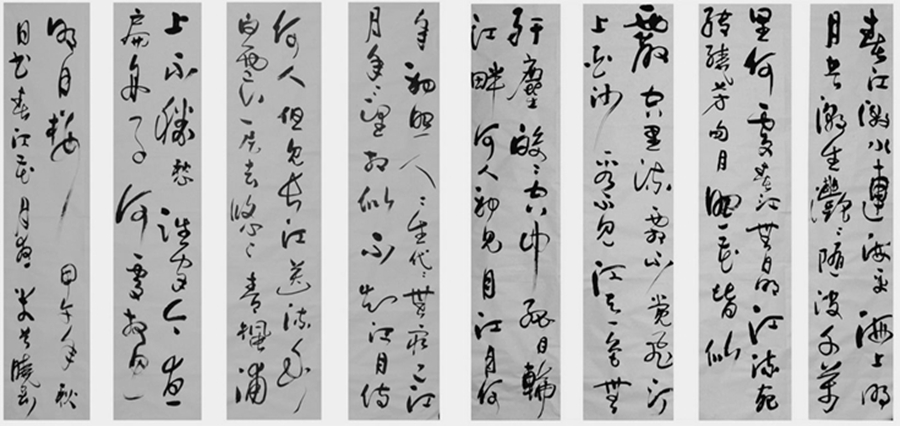 春江潮水連海平海上明
月共潮生灩灩隨波千萬
里何處春江無月明江流宛
轉繞芳甸月照花皆似
霰空里流霜不覺飛汀
上白沙看不見江天一色無
纤塵皎皎空中孤月輪
江畔何人初見月江月何
年初照人人生代代無窮已江
月年年望相似不知江月待
何人但見長江送流水
白雲一片去悠悠青楓浦
上不勝愁誰家今夜
扁舟子何處相思
明月樓 甲午年秋
日書春江花月夜